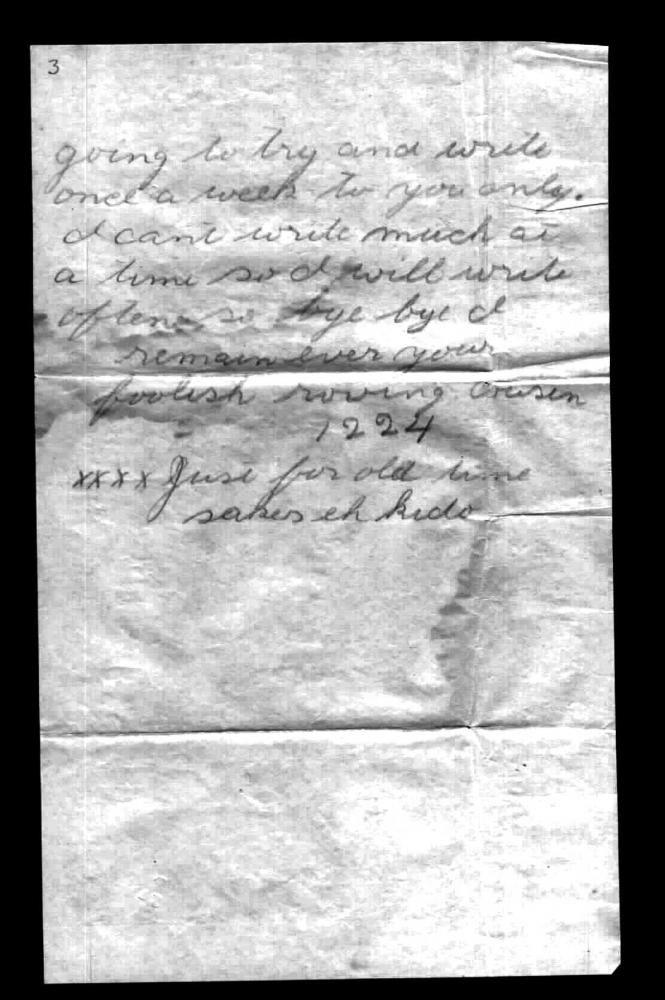 3
going to try and write
once a week to you only.
I cant write much at
a time so I will write
often so bye bye I
remain ever your
foolish roving Cousin
1224
xxxx Just for old time
sakes eh kido